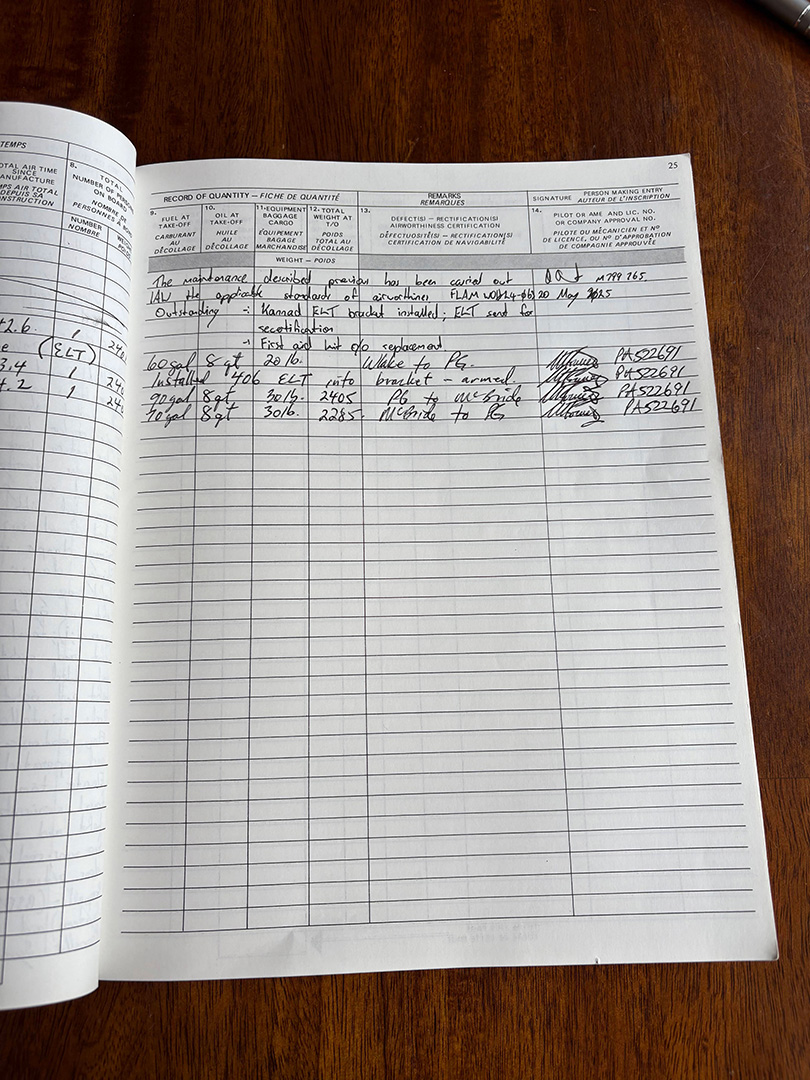 TEMPS
TOTAL AIR TIME
SINCE
MANUFACTURE
TEMPS AIR TOTAL
DEPUIS SA
CONSTRUCTION
8.
TOTAL
NUMBER OF PERSONS
ON BOARD
NOMBRE DE
PERSONNES À BORD
NUMBER
NOMBRE
2.6. 1
(ELT)
3.4 1
4.2 1
25
RECORD OF QUANTITY — FICHE DE QUANTITÉ
REMARKS
REMARQUES
SIGNATURE PERSON MAKING ENTRY
AUTEUR DE L'INSCRIPTION
9.
FUEL AT
TAKE-OFF
CARBURANT
AU
DÉCOLLAGE
10.
OIL AT
TAKE-OFF
HUILE
AU
DÉCOLLAGE
11-EQUIPMENT
BAGGAGE
CARGO
ÉQUIPEMENT
BAGAGE
MARCHANDISE
12. TOTAL
WEIGHT AT
T/O
POIDS
TOTAL AU
DÉCOLLAGE
13.
DEFECT(S) — RECTIFICATION(S)
AIRWORTHINESS CERTIFICATION
DÉFECTUOSITÉ(S) — RECTIFICATION(S)
CERTIFICATION DE NAVIGABILITÉ
14.
PILOT OR AME AND LIC. NO.
OR COMPANY APPROVAL NO.
PILOTE OU MÉCANICIEN ET Nº
DE LICENCE, OU Nº D'APPROBATION
DE COMPAGNIE APPROUVÉE
WEIGHT — POIDS
The maintenance described previous has been carried out M799765.
IAW the applicable standards of airworthiness FLAM 20 May 2025
Outstanding :- Kannad ELT bracket installed; ELT sent for
recertification
:- First aid kit o/o replacement.
60gal 8qt 20lb. Wake to PG. PA522691
Installed 406 ELT into bracket - armed. PA522691
90gal 8qt 30lb. 2405 PG to McBride PA522691
70gal 8qt 30lb. 2285. McBride to PG PA522691